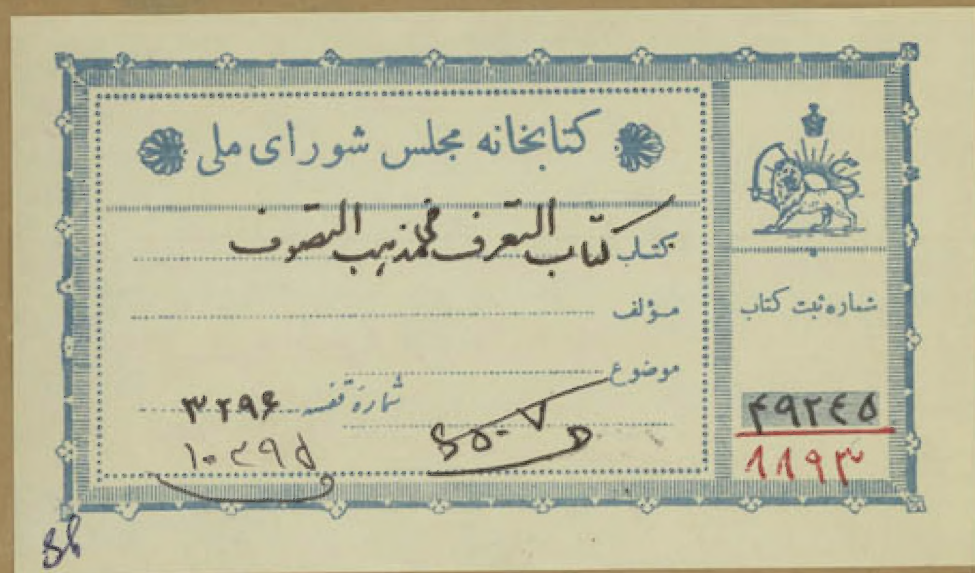 کتابخانه مجلس شورای ملی
کتاب کتاب التعرف فی مذهب التصوف
مؤلف
موضوع
شماره قفسه ۳۲۹۶
شماره ثبت کتاب
۴۹۲۴۵
۱۱۹۳